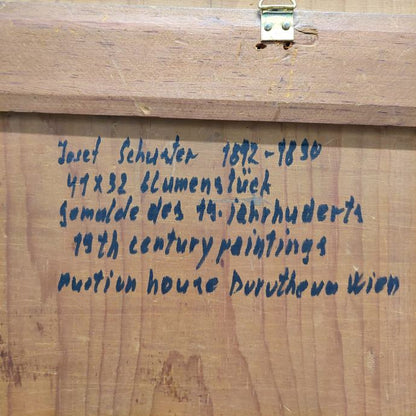 Josef Schuster 1812-1890
41x32 blumenstück
gemalde des 19. jahrhuderts
19th century paintings
auction house Dorotheum Wien